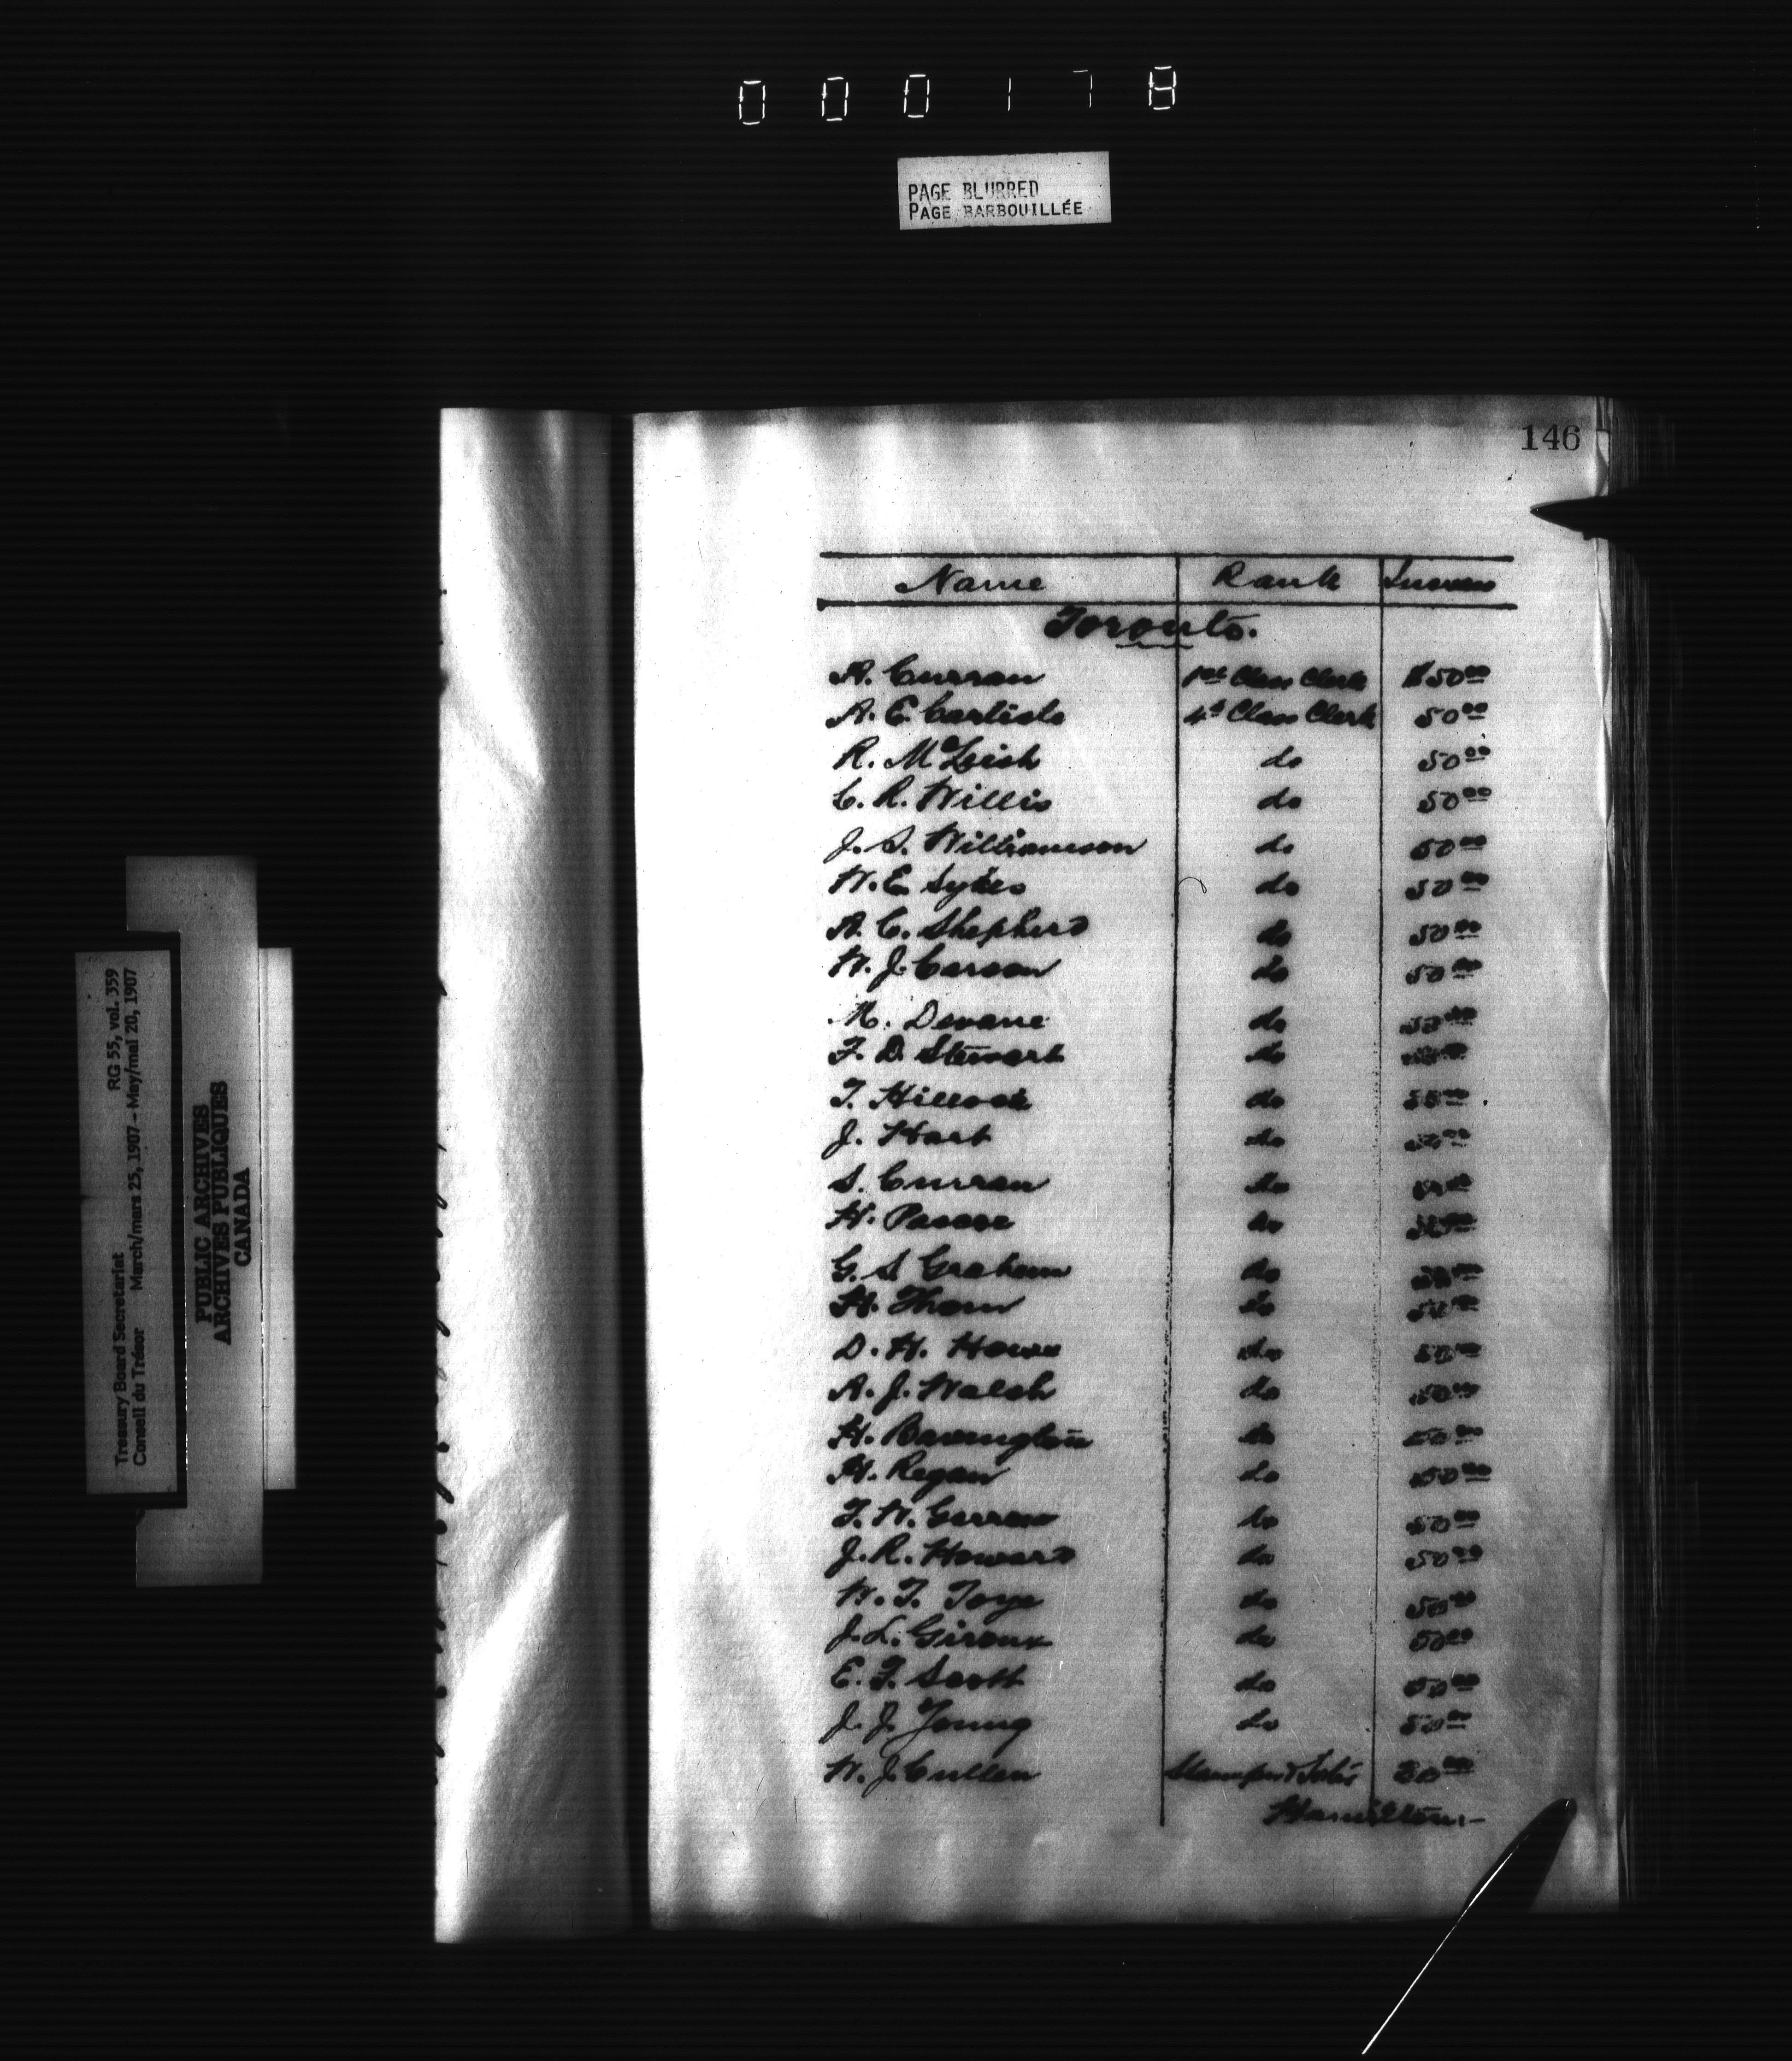 000178
PAGE BLURRED
PAGE BARBOUILLÉE
146
Name Rank Increase
Toronto.
A. Curran 1st Class Clerk $50 00
A. E. Carlisle 4th Class Clerk 50 00
R. McLeish do 50 00
C. R. Willis do 50 00
J. S. Williamson do 50 00
W. E. Sykes do 50 00
A. C. Shepherd do 50 00
W. J. Carson do 50 00
M. Devane do 50 00
F. D. Stewart do
T. Hillock do 50 00
J. Hart do 50 00
S. Curran do
H. do 50 00
G. S. Graham do 50 00
H. Thom do 50 00
D. H. Howe do 50 00
A. J. Walsh do 50 00
H. Bavington do 50 00
H. Regan do 50 00
T. H. do 50 00
J. R. Howard do 50 00
W. T. Toye do 50 00
J. L. Giroux do 50 00
E. F. Scott do 50 00
J. J. Young do 50 00
W. J. Cullen 00
Hamilton:-
Treasury Board Secretariat RG 55, vol. 359
Conseil du Trésor March/mars 25, 1907 - May/mai 20, 1907
PUBLIC ARCHIVES
ARCHIVES PUBLIQUES
CANADA